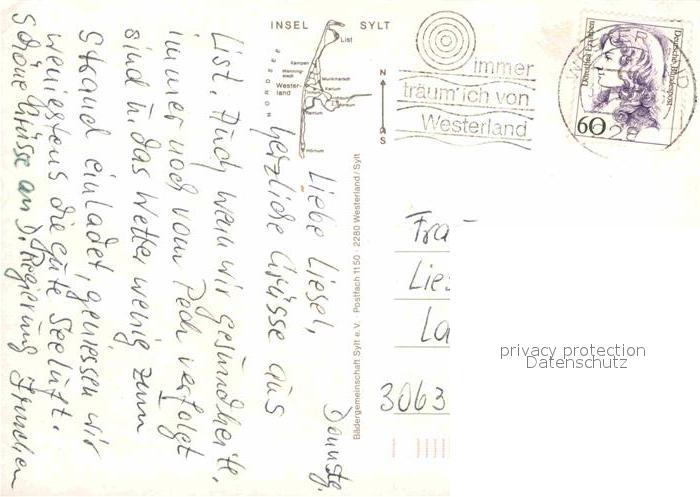 INSEL SYLT
List
Kampen
Munkmarsch
Westerland
Keitum
Morsum
Rantum
Hörnum
NORDSEE
N
S
immer
träum' ich von
Westerland
Deutsche Bundespost
60
Liebe Liesel,
herzliche Grüsse aus
List. Auch wenn wir gesundheitl.
immer noch vom Pech verfolgt
sind u. das Wetter wenig zum
Strand einladet, geniessen wir
wenigstens die gute Seeluft.
Schöne Grüsse an D. Regierung
Bädergemeinschaft Sylt e.V. Postfach 1150 · 2280 Westerland/Sylt
Fra
Lie
La
3063
privacy protection
Datenschutz